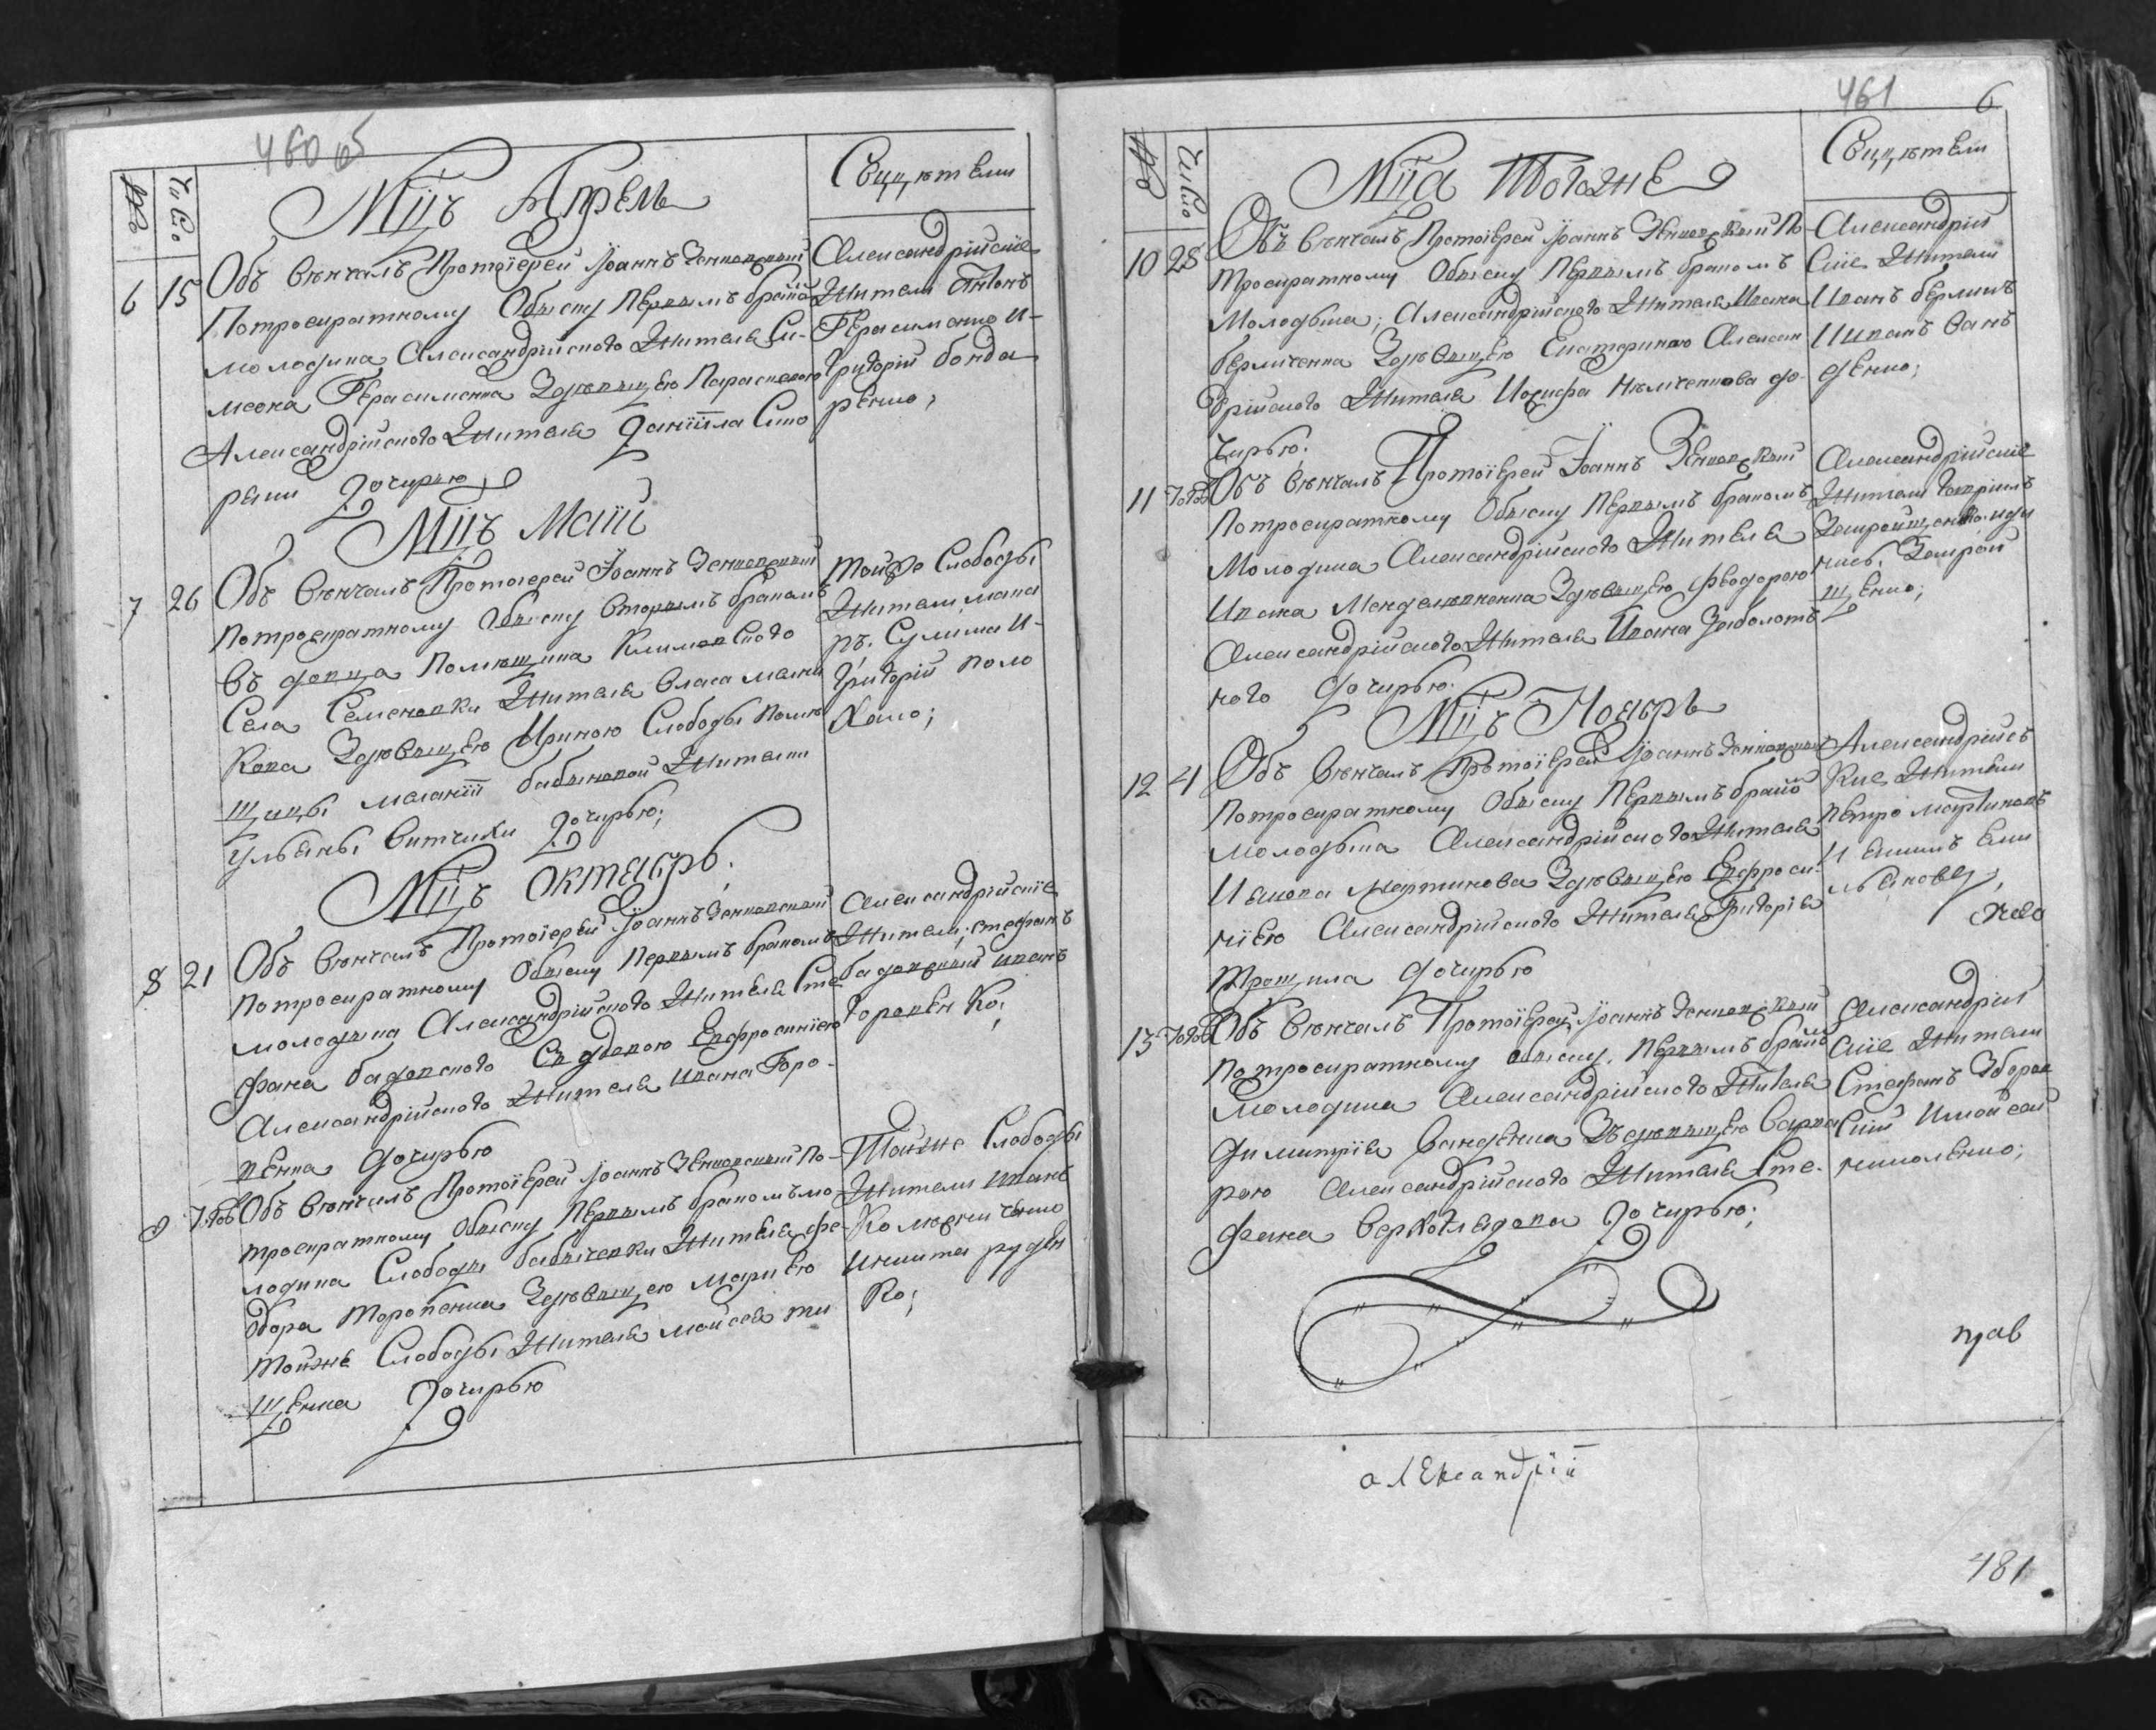 460 об
№
Число
Мцъ Апрель
Свидѣтели
6 15 Объ вѣнчалъ Протоіерей Іоаннъ Зеньковскій
Потроекратному Обыску Первымъ бракомъ
молодика Александрійского Жителя Си-
меона Герасименка Здѣвицею Параскевою
Александрійского Жителя Даніила Ско
рыни Дочерью
Александрійскіе
Жители Антонъ
Герасименко И-
Григорій бонда
ренко;
Мцъ Маій
7 26 Объ вѣнчалъ Протоіерей Іоаннъ Зеньковскій
потроекратному Обыску вторымъ бракомъ
въ довца Помѣщика Климовского
Села Семеновки Жителя Власа
Кова Здѣвицею Ириною Слободы Помѣ
щицы Меланіи бабычевой Жителки
Ульяны Дочирью;
Тойже Слободы
Жители мака
ръ Сулима И-
Григорій поло
Мцъ Октябрь;
8 21 Объ вѣнчалъ Протоіерей Іоаннъ Зеньковскій
потроекратному Обыску Первымъ бракомъ
молодика Александрійского Жителя Сте
фана бадовского Сѣ дѣвкою Евфросиніею
Александрійского Жителя Ивана Горо-
венка Дочирью
Александрійскіе
Жители; стефанъ
бадовскій иванъ
Горовен ко;
9 Тогож Объ вѣнчалъ Протоіерей Іоаннъ Зеньковскій По-
троекратному Обыску Первымъ бракомъ мо
лодика Слободы бабычевки Жителя Фе-
дора Торопенка Здѣвицею Маріею
тойже Слободы Жителя Мойсея ти
щенка Дочирью
Тойже Слободы
Жители иванъ
Иникита руден
ко;
461
6
№
Число
Мца Тогожне
Свидѣтели
10 28 Объ вѣнчалъ Протоіерей Іоаннъ Зеньковскій По
троекратному Обыску Первымъ бракомъ
Молодыка; Александрійского Жителя Ивана
берличенка Здѣвицею Екатериною Алексан
дрійского Жителя Иосифа Нѣмченкова до-
чирью.
Александрій
скіе Жители
Иванъ берлинъ
И иванъ Ван
денко;
11 Тогож Объ вѣнчалъ Протоіерей Іоаннъ Зеньковскій
Потроекратному Обыску Первымъ бракомъ
Молодика Александрійского Жителя
Ивана Здѣвицею Феодорою
Александрійского Жителя Ивана Заболотъ
ного дочирью.
Александрійскіе
Жители Гавріилъ
щенко;
Мцъ Ноябрь
12 4 Объ вѣнчалъ Протоіерей Іоаннъ Зеньковскій
Потроекратному Обыску Первымъ бракомъ
молодыка Александрійского Жителя
Иякова Мартинова Здѣвицею Евфроси-
ніею Александрійского Жителя Григорія
Трощила дочирью
Александрійсъ
кие Жители
Петро мартиновъ
И Екимъ Еми
льяновъ,
13 Тогож Объ вѣнчалъ Протоіерей Іоаннъ Зеньковскій
Потроекратному обыску. Первымъ бракомъ
Молодика Александрійского Жителя
Димитрія Ванденка Здѣвицею Варва
рою Александрійского Жителя Сте-
фана Верхогледова Дочирью;
Александрій
скіе Жители
Стефанъ Зборов
скій Имойсей
николенко;
прав
Александріи
481